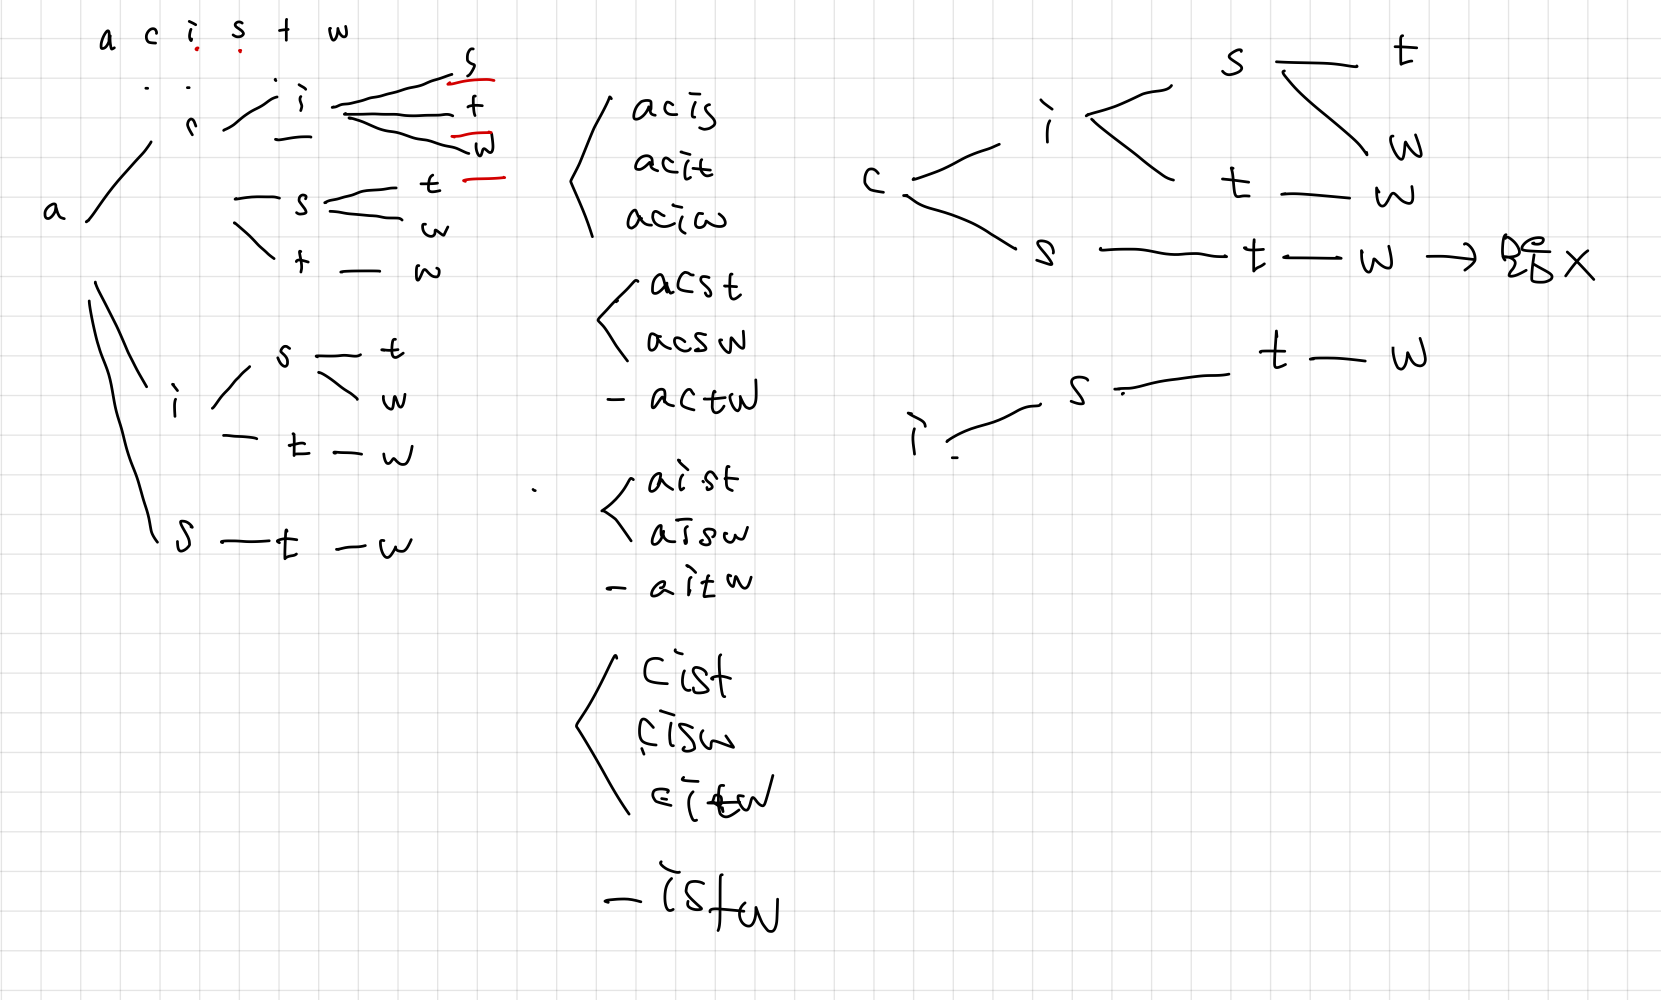 a c i s t w
a
c
i
s
t
w
s
t
w
t
w
i
s
t
w
t
w
s
t
w
acis
acit
aciw
acst
acsw
actw
aist
aisw
aitw
cist
cisw
citw
istw
c
i
s
t
w
t
w
s
t
w
→
x
i
s
t
w